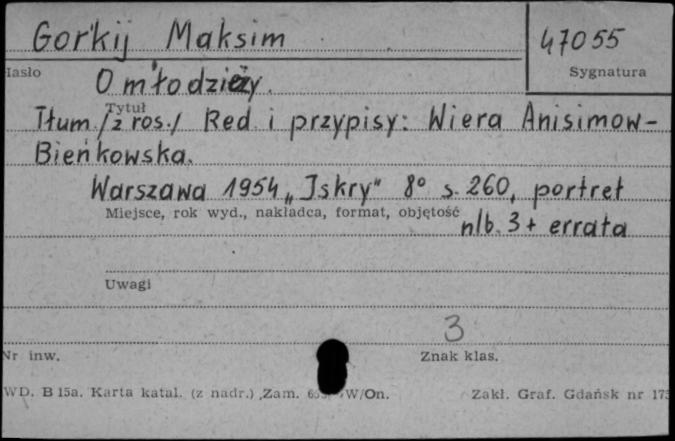 Gor'kij Maksim
47055
Hasło
Sygnatura
O młodzieży.
Tytuł
Tłum. /z ros./ Red. i przypisy: Wiera Anisimow-
Bieńkowska.
Warszawa 1954 „Iskry" 8° s. 260, portret
Miejsce, rok wyd., nakładca, format, objętość
nlb. 3 + errata
Uwagi
3
Nr inw.
Znak klas.
WD. B 15a. Karta katal. (z nadr.) Zam. W/On.
Zakł. Graf. Gdańsk nr